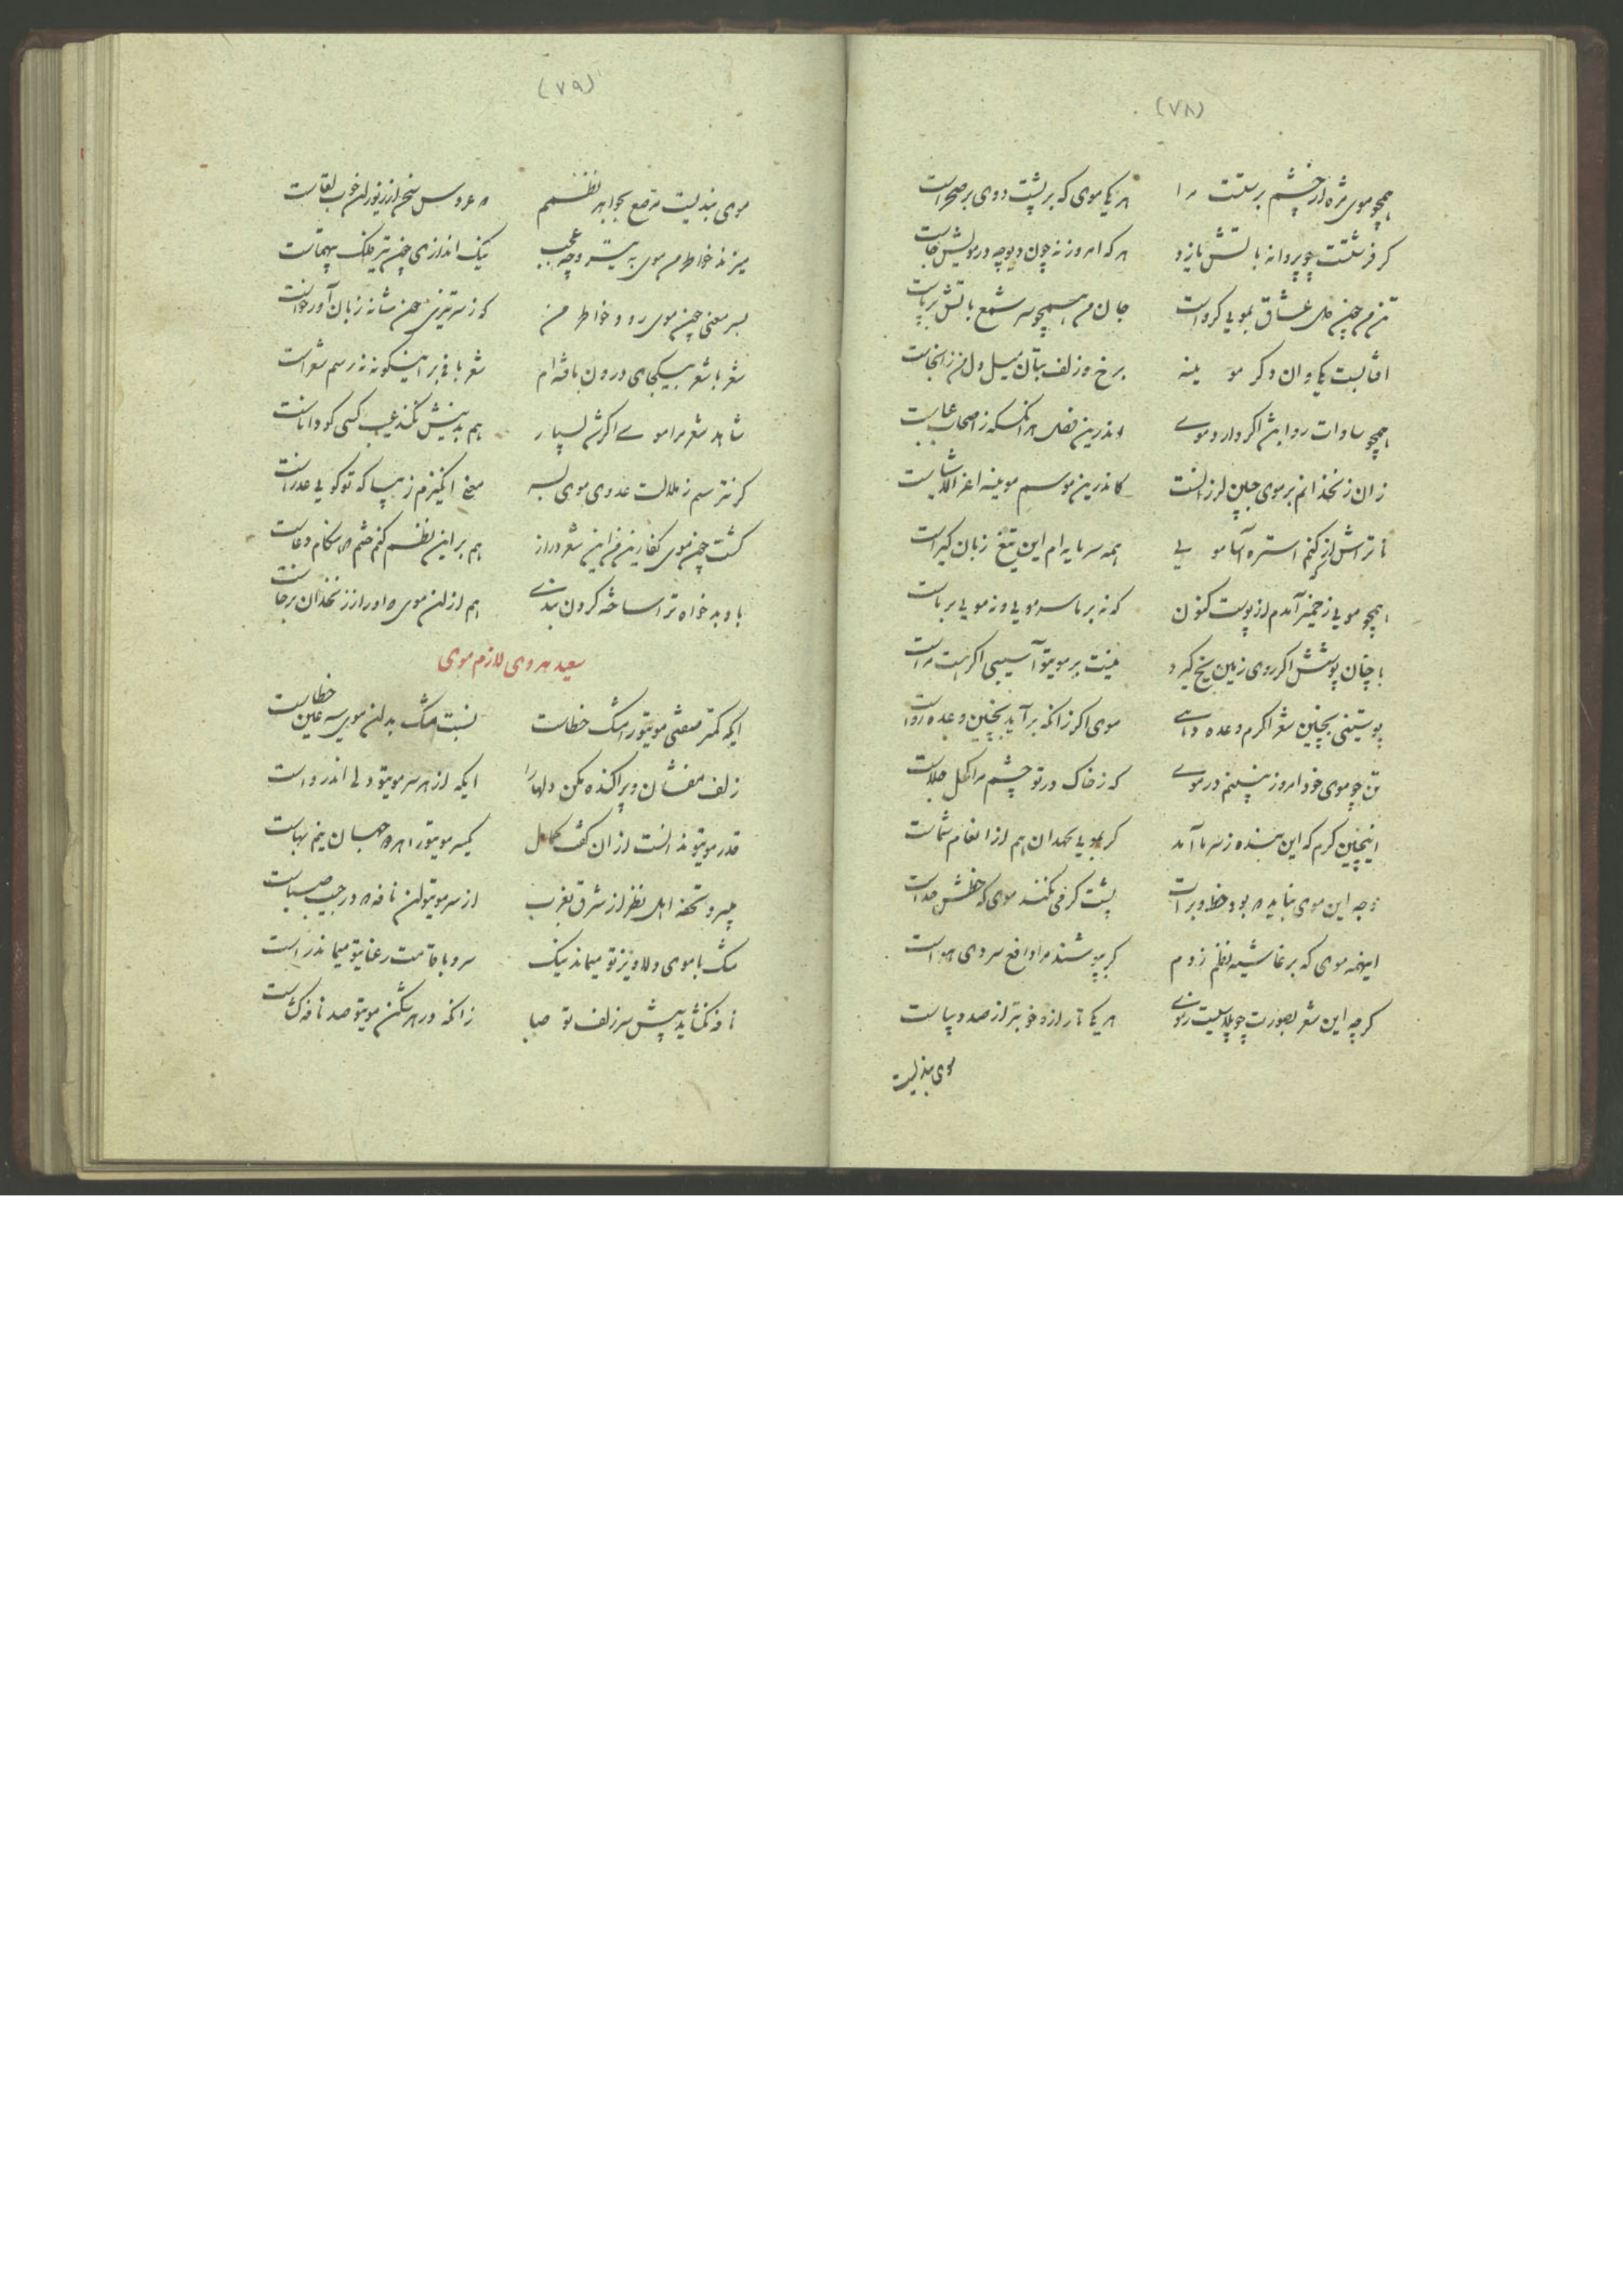 (۷۸)
همچو موی مژه از چشم برستت مرا هر یکی موی که بر پشت ددی بر صحراست
گر فرشتست چو پروانه باتش یازد هر که امروز نه چون دیوچه در مویش جاست
تن من چون دل عشاق بمویی گرو است جان من همچو سر شمع باتش برپاست
افتابست یکی وان دگر مویینه برخ و زلف بتان میل دل من زانجاست
همچو سادات دوابش اگر دارد موی اندرین فصل هر انکسکه ز اصحاب عباست
زان زنخدانم بر موی چنین لرزانست کاندرین موسم مویینه اعز الاشیاست
تا تراش از که کنم استره آسا مویی همه سرمایه ام این تیغ زبان گیراست
همچو مویی ز خمیر آمدم از پوست کنون که نه بر ما سر مویی و نه مویی بر ماست
با چنان پوشش اگر روی زمین یخ گیرد نیست بر موی تو آسیبی اگر هست مراست
پوستینی بچنین شعر اگرم وعده دهی موی اگر زانکه برآید بچنین وعده رواست
تن چو موی خود امروز نبینم در موی که ز خاک در تو چشم مرا کحل جلاست
اینچنین گرم که این بنده ز سرما آمد گر بمویی بجهد ان هم از انعام شماست
وجه این موی بباید نه بود خط و برات پشت گرمی نکند موی که خطش مداست
اینهمه موی که بر غاشیه نظم زدم گر بپوشند مرا دافع سردی هواست
گرچه این شعر بصورت چو پلاسیست ز موی هر یکی تار ازو خوبتر از صد دیباست
موی بندیست
(۷۹)
موی بندیست مرصع بجواهر نظمم نه عروس سخن از زیور ان خوب لقاست
میزند خاطر من موی به تیر و چه عجب نیک اندازی چون تیر فلک بیهمتاست
بسر معنی چون موی رود خاطر من که ز سرتیزی چون شانه زبان آور خواست
شعر با شعر بیکجای درون بافته ام شعر بافی بر اینگونه نه رسم شعراست
شاهد شعر مرا موی اگرش بسیار هم بدینش نکند عیب کسی کو داناست
گر نترسم ز ملالت عدوی موی بسر میخ انگیزم زیبا که تو گویی عذراست
گشت چون موی نگارین من این شعر دراز هم بر این نظم کنم ختم که هنگام دعاست
باد بدخواه ترا ساخته گردون بندی هم از ان موی که او را ز زنخدان برخاست
سعید هروی لازم موی
ایکه کمتر صفتی موی تو را مشک خطاست نسبت مشک بدان موی سیه عین خطاست
زلف مفشان و پراکنده مکن دلها را ایکه از هر سر موی تو دلی اندرواست
قدر موی تو ندانست ازان گفت کمال یکسر موی تو را هر دو جهان نیم بهاست
میبرد تحفه اهل نظر از شرق بغرب از سر موی تو ان نافه که در جیب صباست
مشک با موی دلاویز تو میماند نیک سرو با قامت رعنای تو میماند راست
نافه نگشاید پیش سر زلف تو صبا زانکه در هر شکن موی تو صد نافه گشاست